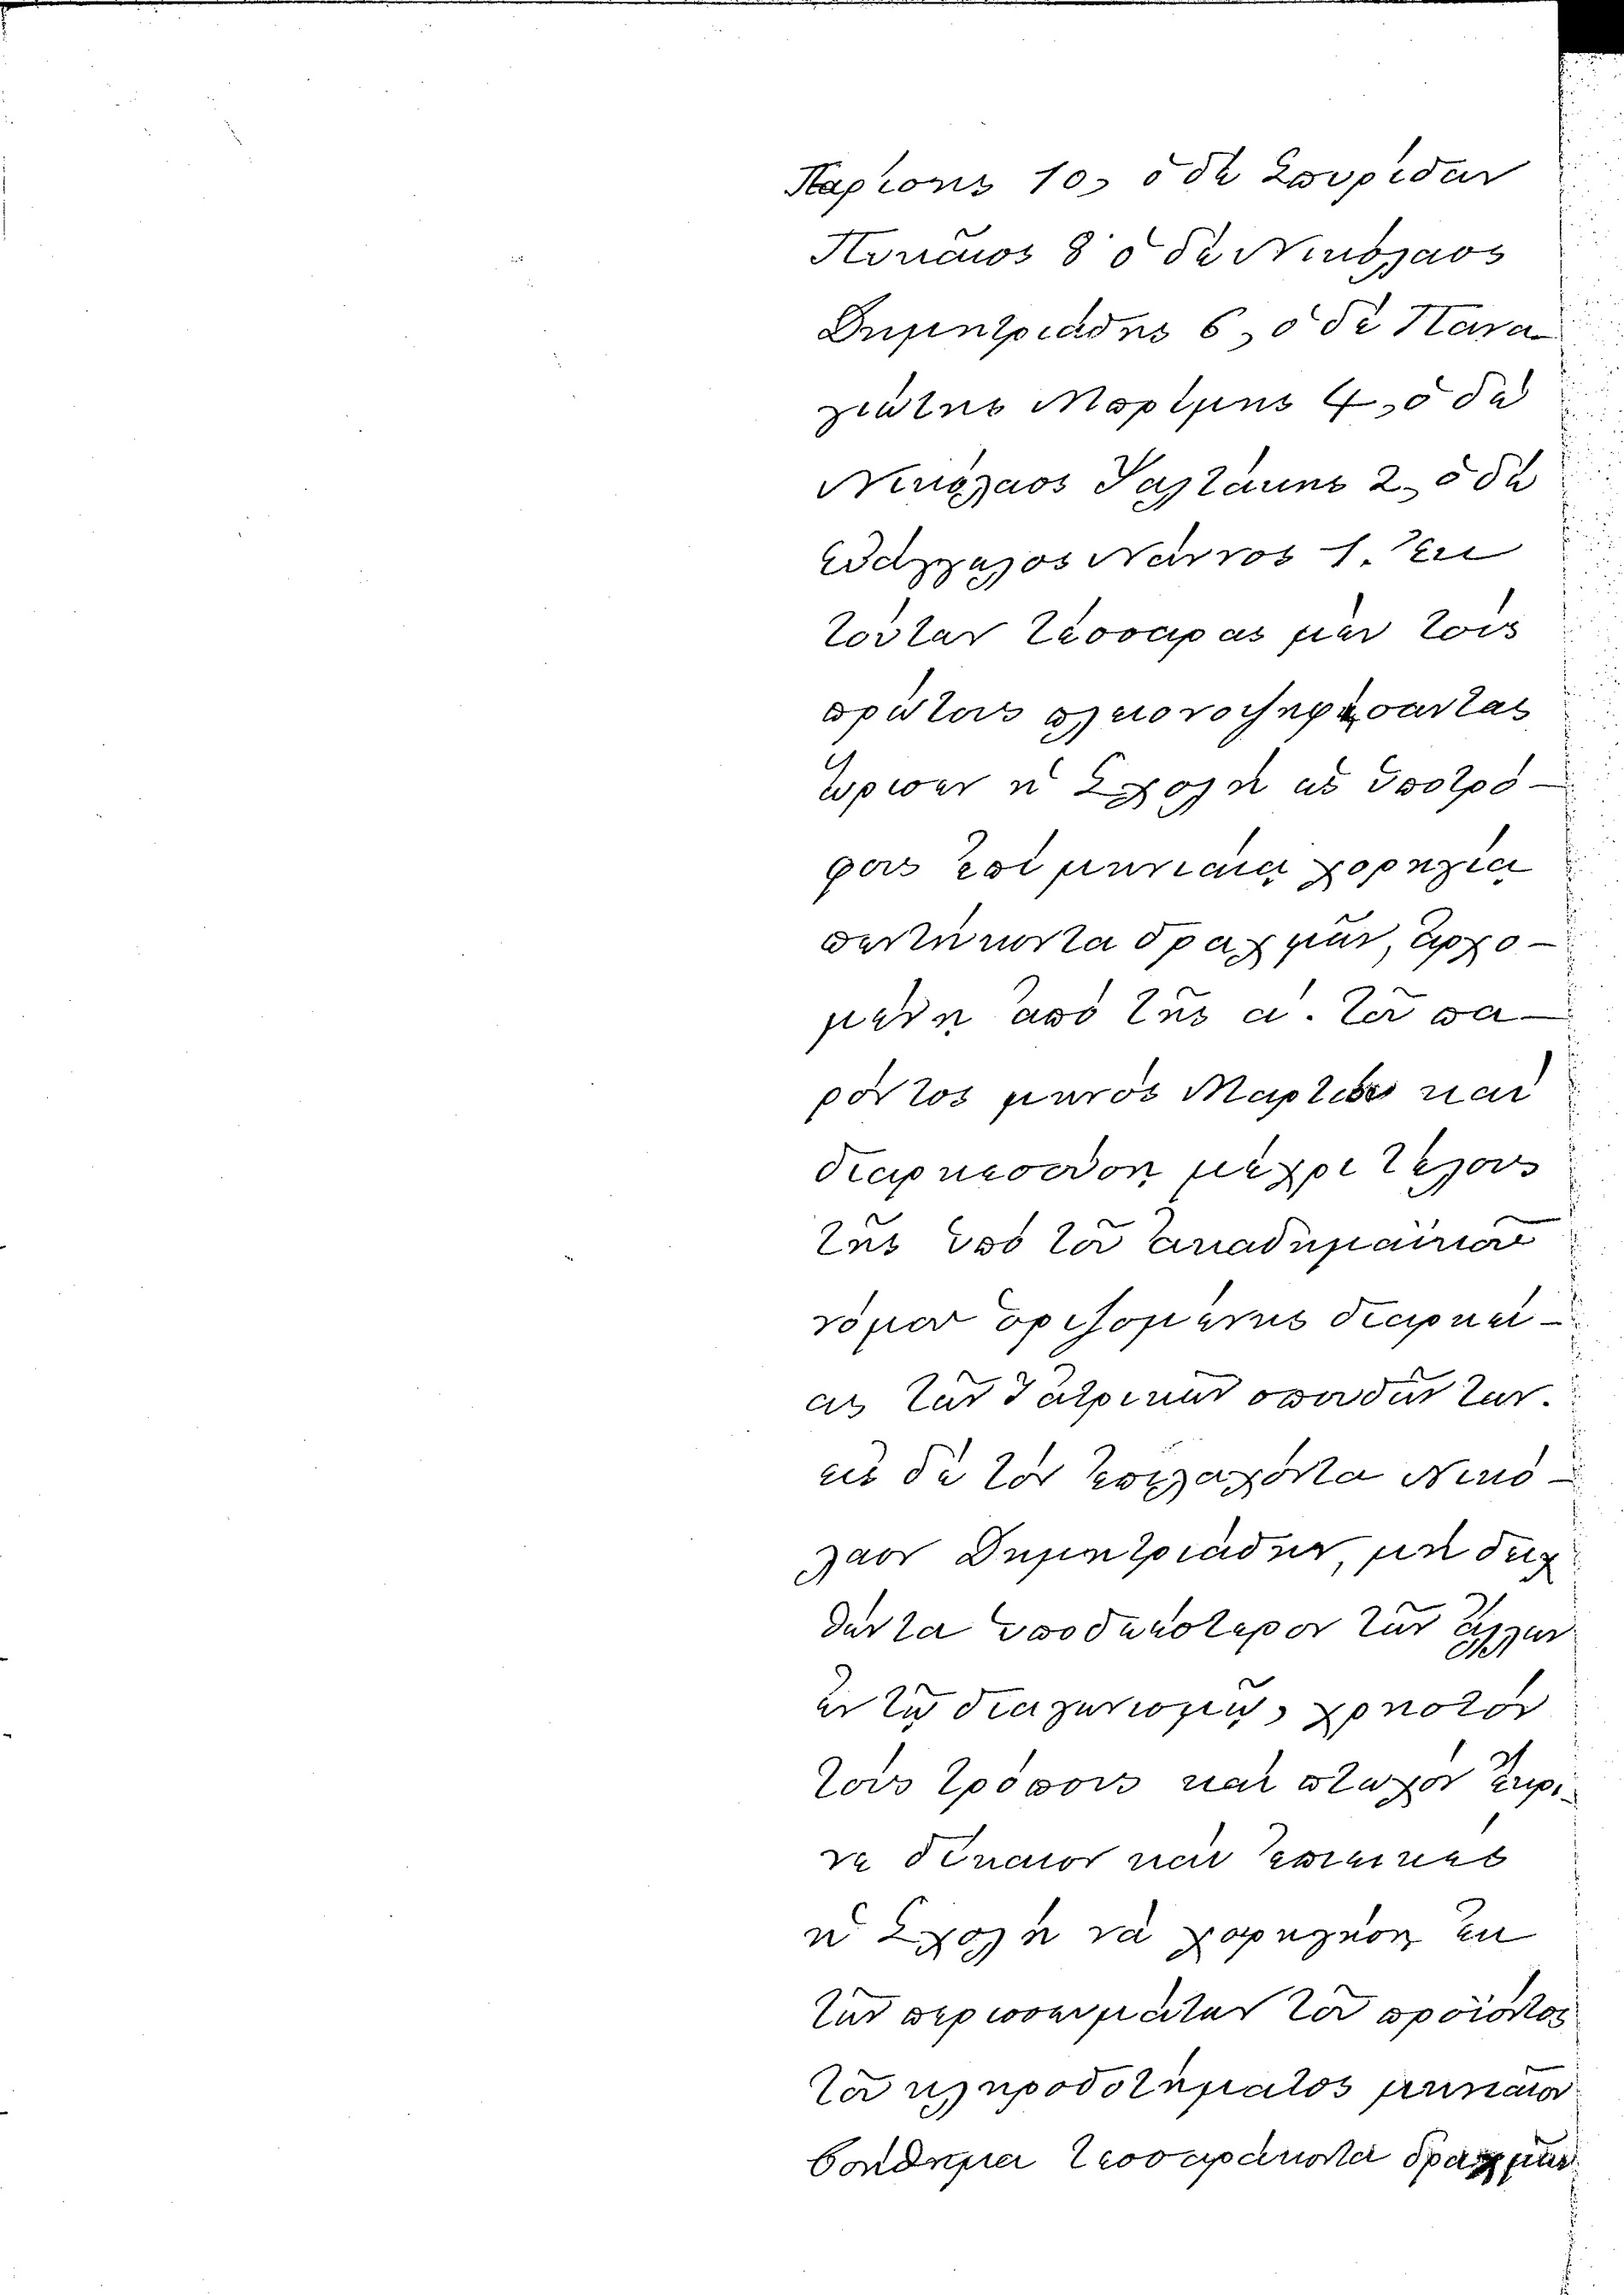 10, ὁ δὲ Σπυρίδων
8 ὁ δὲ Νικόλαος
Δημητριάδης 6, ὁ δὲ Πανα-
γιώτης 4, ὁ δὲ
Νικόλαος 2, ὁ δὲ
Εὐάγγελος Νάννος 1. Ἐκ
τούτων τέσσαρας μὲν τοὺς
πρώτους πλειονοψηφήσαντας
ὥρισεν ἡ Σχολὴ ὡς ὑποτρό-
φους ἐπὶ μηνιαίᾳ χορηγίᾳ
πεντήκοντα δραχμῶν, ἀρχο-
μένῃ ἀπὸ τῆς α΄. τοῦ πα-
ρόντος μηνὸς Μαρτίου καὶ
διαρκεσούσῃ μέχρι τέλους
τῆς ὑπὸ τοῦ ἀκαδημαϊκοῦ
νόμου ὁριζομένης διαρκεί-
ας τῶν ἰατρικῶν σπουδῶν των.
εἰς δὲ τὸν ἐπιλαχόντα Νικό-
λαον Δημητριάδην, μὴ δειχ-
θέντα ὑποδεέστερον τῶν ἄλλων
ἐν τῷ διαγωνισμῷ, χρηστὸν
τοὺς τρόπους καὶ πτωχὸν ἔκρι-
νε δίκαιον καὶ ἐπιεικὲς
ἡ Σχολὴ νὰ χορηγήσῃ ἐκ
τῶν περισσευμάτων τοῦ προϊόντος
τοῦ κληροδοτήματος μηνιαῖον
βοήθημα τεσσαράκοντα δραχμῶν